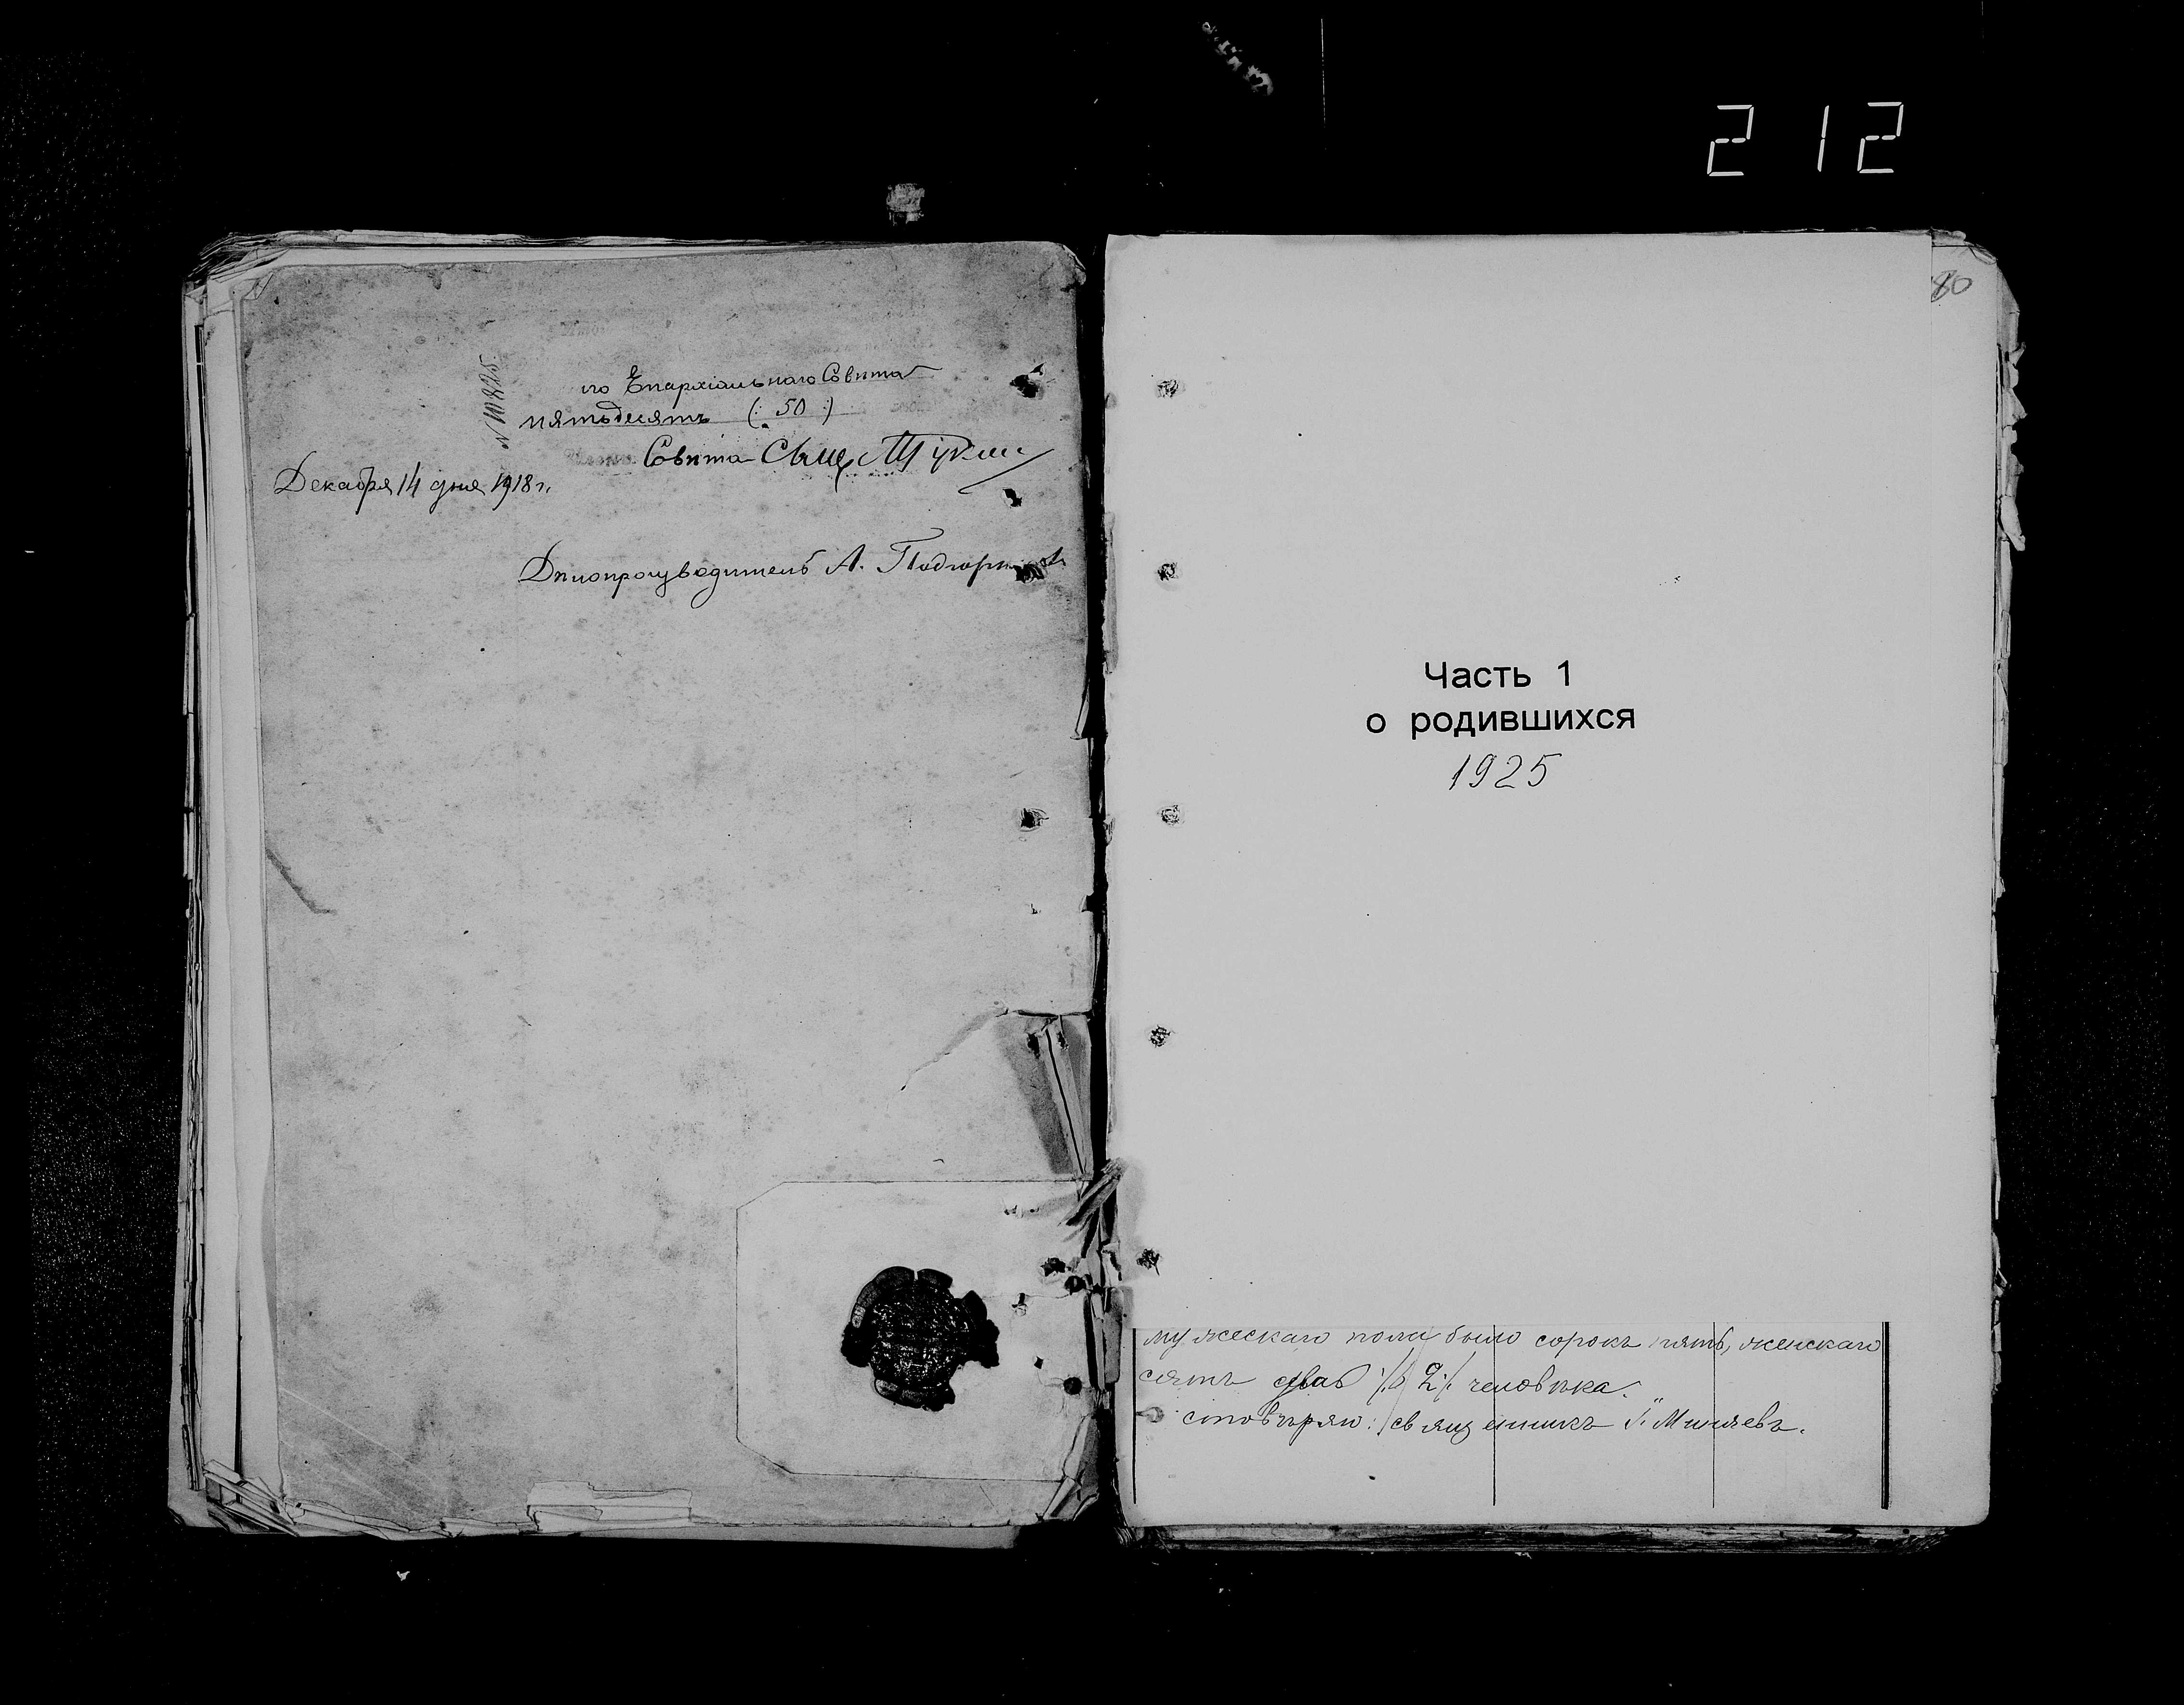 212
№ 10825
го Епархіальнаго Совѣта
пятьдесятъ (: 50 :)
Совѣта Свящ.
Декабря 14 дня 1918 г.
Дѣлопроизводитель А.
80
Часть 1
о родившихся
1925
мужескаго пола было сорокъ пять, женскаго
сятъ два 2 % человѣка.
стовѣряю: священникъ Г. Миняевъ.